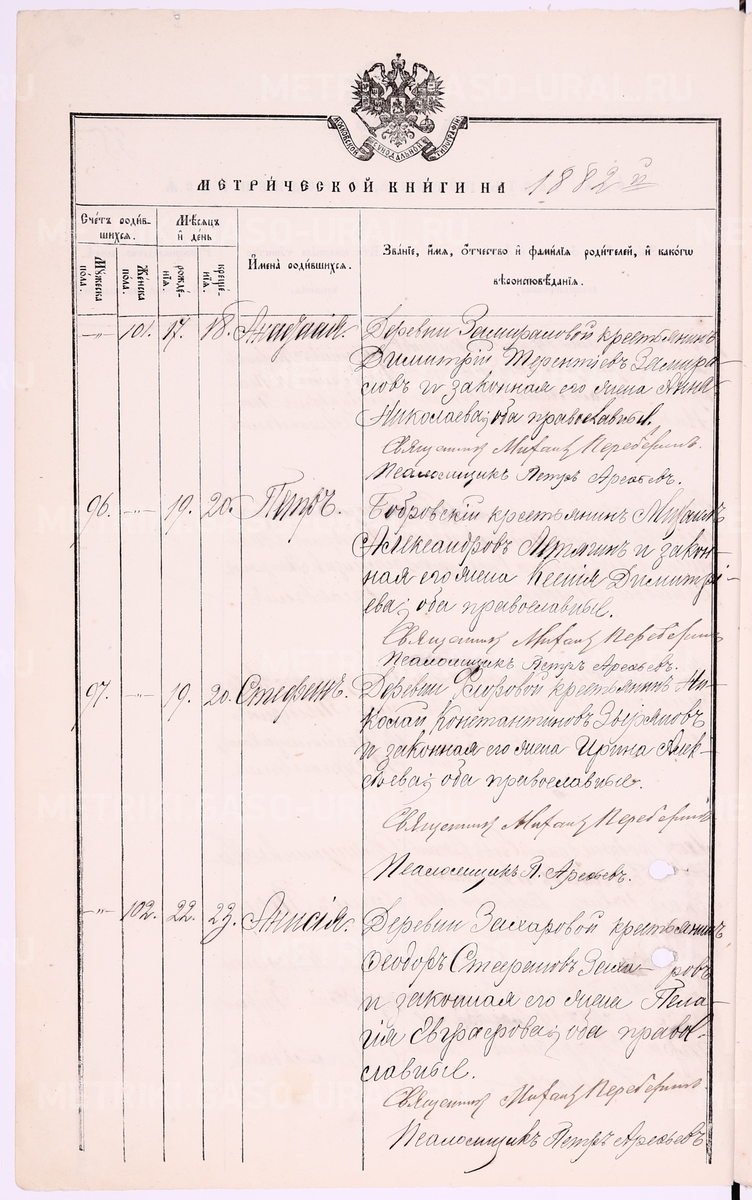 МОСКОВСКОЙ СѴНОДАЛЬНОЙ ТИПОГРАФІИ
МЕТРИ́ЧЕСКОЙ КНИ́ГИ НА 1882 й
Сче́тъ роди́в-
шихся.
Мѣ́сяцъ
и де́нь
Имена̀ роди́вшихся.
Зва́ніе, и́мя, о́тчество и фами́лія роди́телей, и како́гѡ
вѣроисповѣ́данія.
Му́жеска
по́ла.
Же́нска
по́ла.
рожде́-
нія.
креще́-
нія.
—„— 101. 17. 18. Деревни Замираловой крестьянинъ
Димитрій Терентіевъ Замира-
ловъ и законная его жена Анна
Николаева; оба православные.
Священникъ Михаилъ Переберинъ.
Псаломщикъ Петръ Арефьевъ.
96. —„— 19. 20. Петръ. Бобровскій крестьянинъ Михаилъ
Александровъ и закон-
ная его жена Ксенія Димитрі-
ева; оба православные.
Священникъ Михаилъ Переберинъ
Псаломщикъ Петръ Арефьевъ.
97. —„— 19. 20. Стефанъ. Деревни Фроровой крестьянинъ Ни-
колай Константиновъ Зыряновъ
и законная его жена Ирина Алек-
сѣева; оба православные.
Священникъ Михаилъ Переберинъ
Псаломщикъ П. Арефьевъ.
—„— 102. 22. 23. Анисія. Деревни Захаровой крестьянинъ
Ѳеодоръ Стефановъ Захаровъ
и законная его жена Пела-
гія Евграфова; оба право-
славные.
Священникъ Михаилъ Переберинъ
Псаломщикъ Петръ Арефьевъ
METRIKI.GASO-URAL.RU